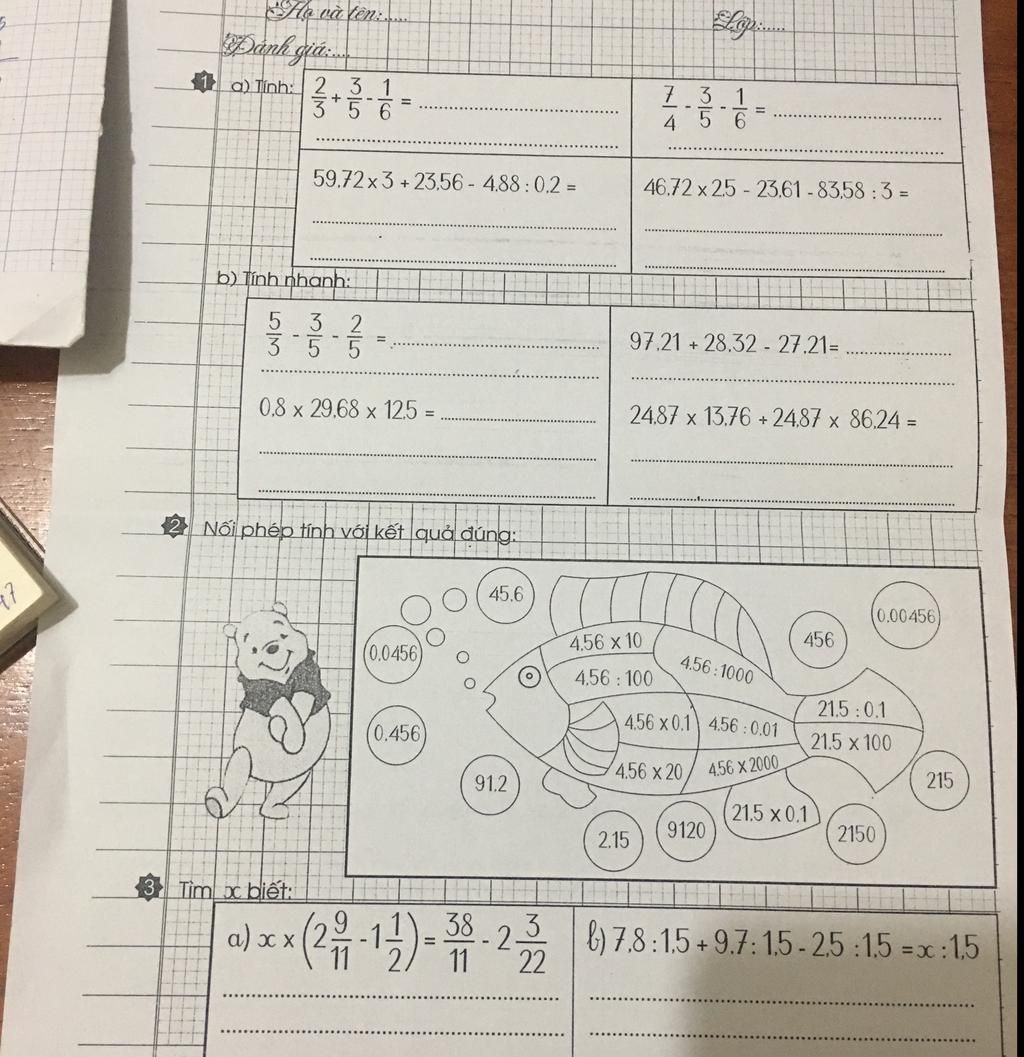 Họ và tên:.....
Lớp:.....
Đánh giá:....
1 a) Tính:
2/3 + 3/5 - 1/6 = ..............................
7/4 - 3/5 - 1/6 = ..............................
59,72 x 3 + 23,56 - 4,88 : 0,2 =
46,72 x 2,5 - 23,61 - 83,58 : 3 =
b) Tính nhanh:
5/3 - 3/5 - 2/5 = ..............................
97,21 + 28,32 - 27,21= ....................
0,8 x 29,68 x 12,5 = ..............................
24,87 x 13,76 + 24,87 x 86,24 =
2 Nối phép tính với kết quả đúng:
45.6
0.00456
456
0.0456
4.56 x 10
4.56 : 1000
4.56 : 100
21.5 : 0.1
4.56 x 0.1
4.56 : 0.01
0.456
21.5 x 100
4.56 x 20
4.56 x 2000
91.2
215
21.5 x 0.1
2.15
9120
2150
3 Tìm x biết:
a) x x (2 9/11 - 1 1/2) = 38/11 - 2 3/22
b) 7,8 : 1,5 + 9,7 : 1,5 - 2,5 : 1,5 = x : 1,5